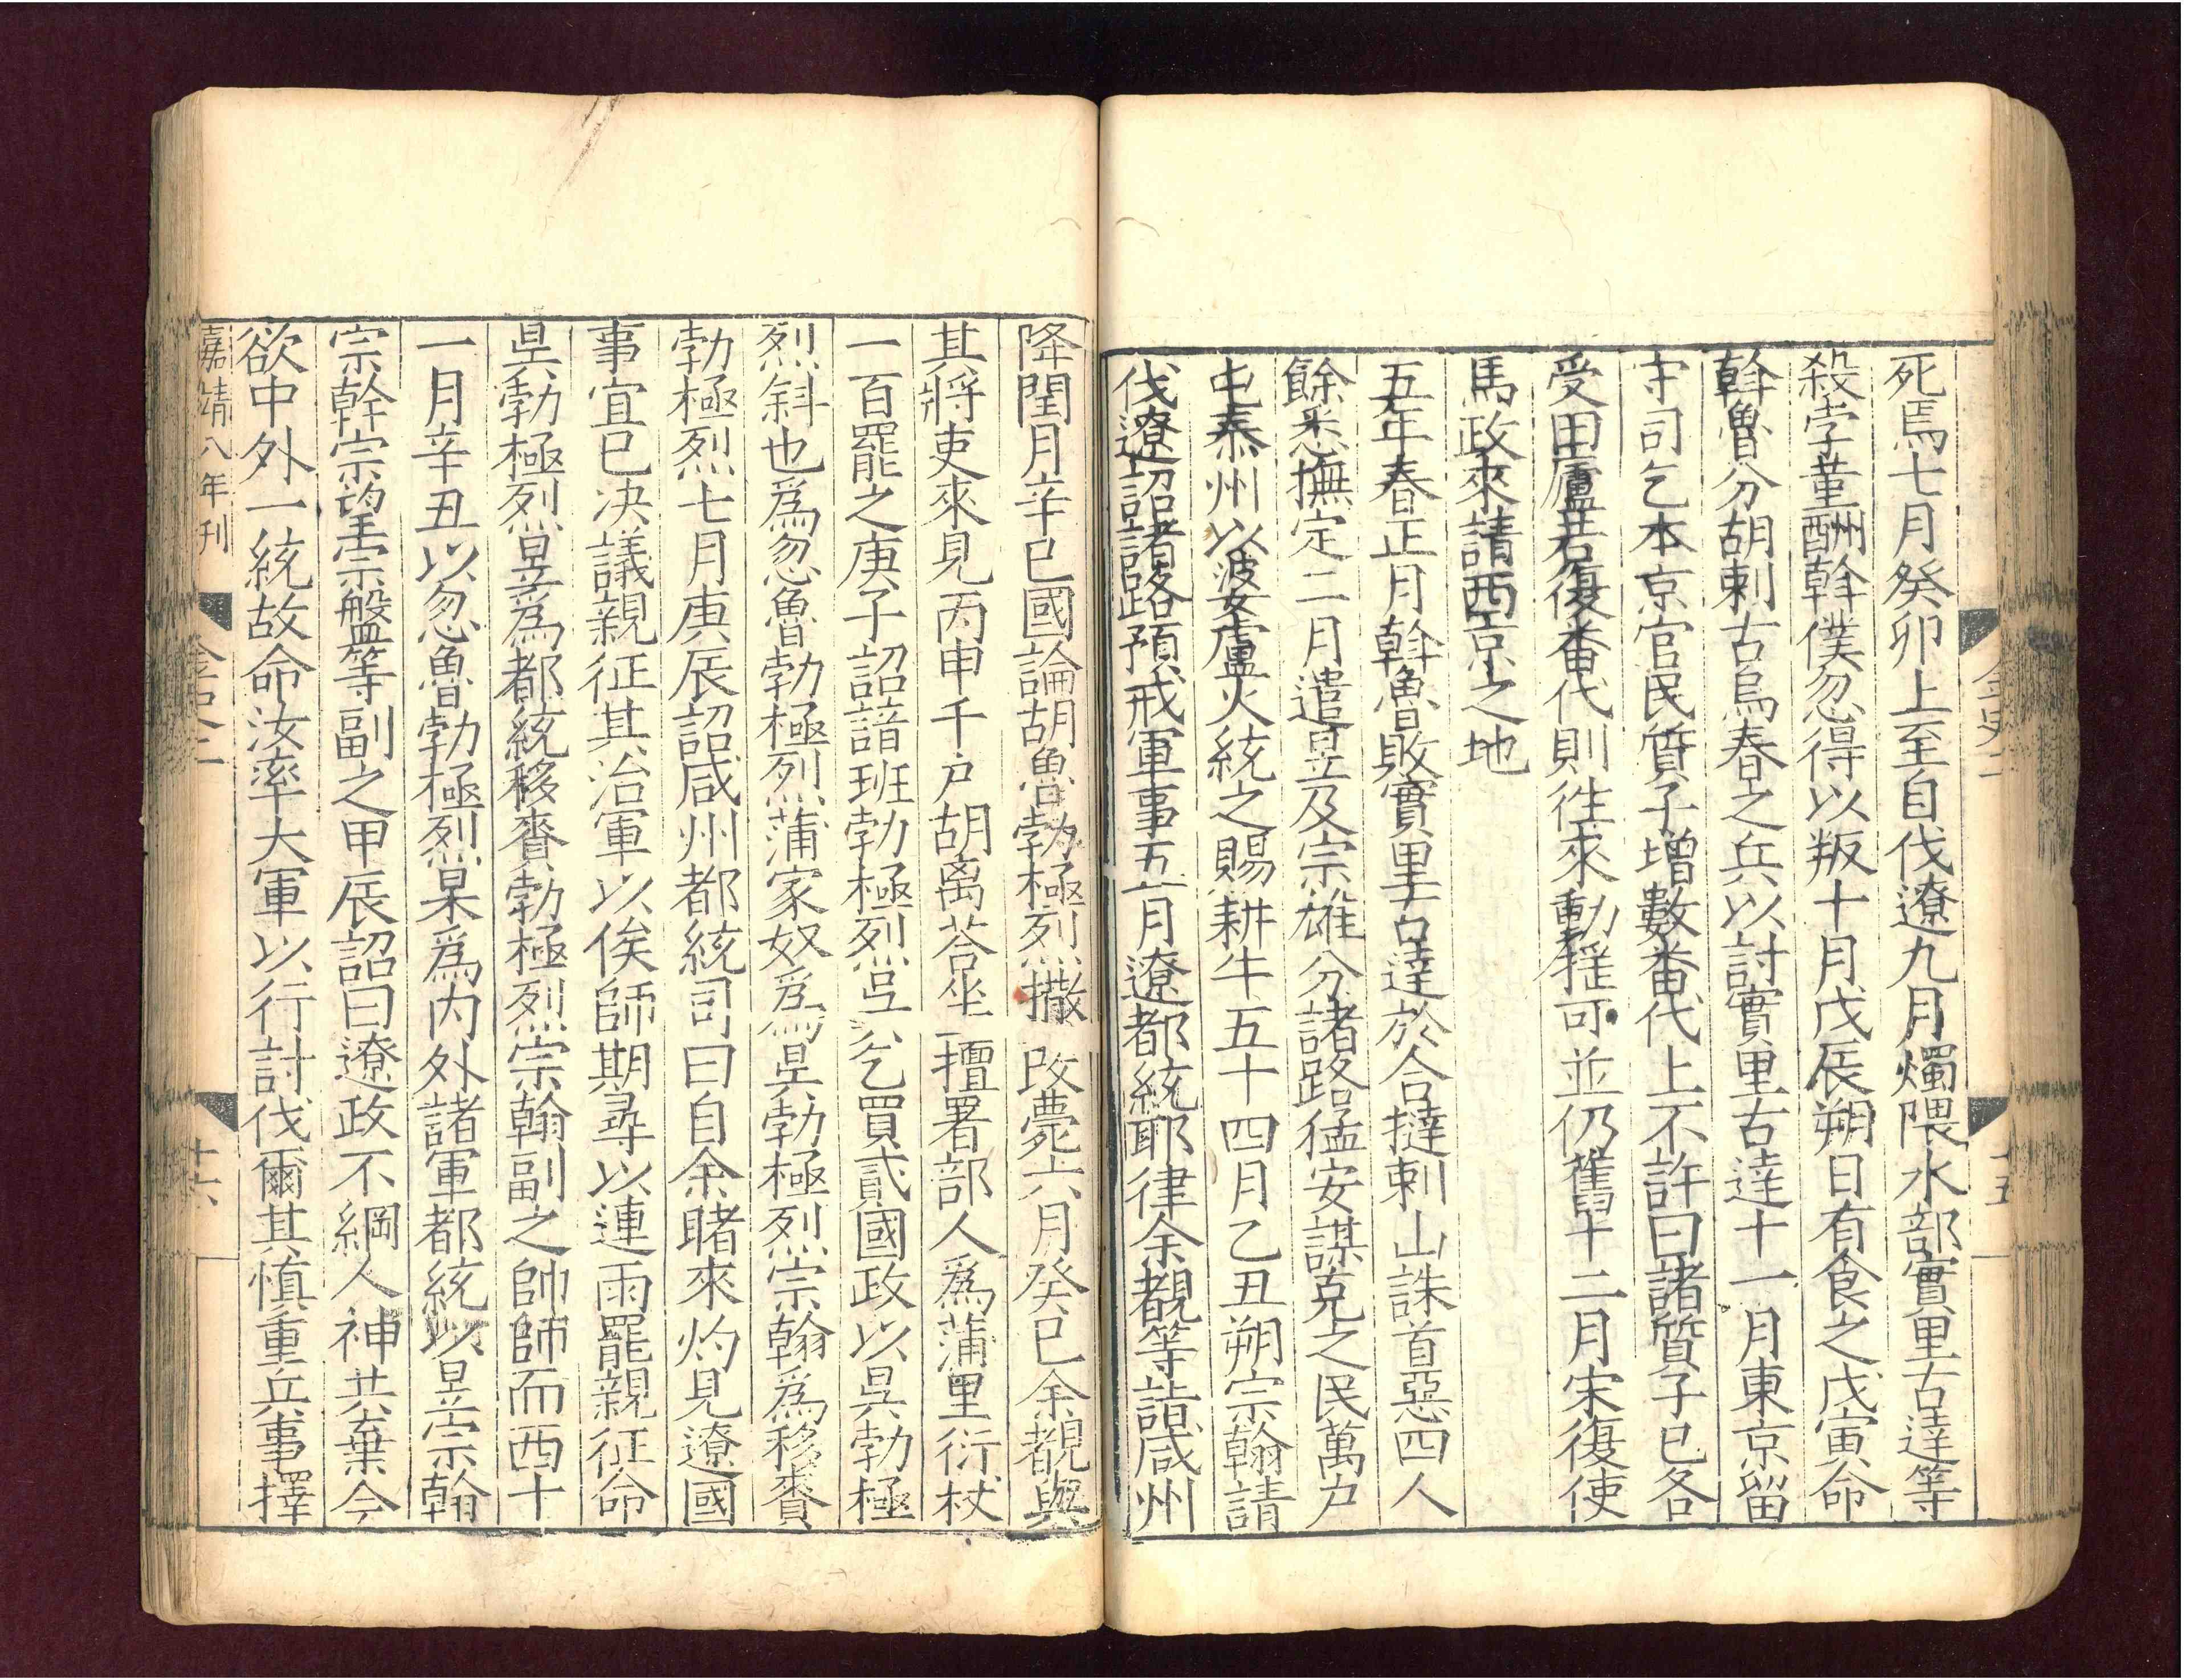 死焉七月癸卯上至自伐遼九月燭隈水部實里古達等
殺孛菫酬斡僕忽得以叛十月戊辰朔日有食之戊寅命
斡魯分胡剌古烏春之兵以討實里古達十一月東京留
守司乞本京官民質子增數番代上不許曰諸質子已各
受田廬若復番代則徃來動揺可並仍舊十二月宋復使
馬政來請西京之地
五年春正月斡魯敗實里古達於合撻剌山誅首惡四人
餘悉撫定二月遣昱及宗雄分諸路猛安謀克之民萬户
屯泰州以婆盧火統之賜耕牛五十四月乙丑朔宗翰請
伐遼詔諸路預戒軍事五月遼都統耶律余覩等詣咸州
降閏月辛巳國論胡魯勃極烈撒改薨六月癸巳余覩與
其將吏來見丙申千户胡离荅坐擅署部人爲蒲里衍杖
一百罷之庚子詔諳班勃極烈吳乞買貳國政以昃勃極
烈斜也爲忽魯勃極烈蒲家奴爲昃勃極烈宗翰爲移賚
勃極烈七月庚辰詔咸州都統司曰自余睹來灼見遼國
事宜已决議親征其治軍以俟師期尋以連雨罷親征命
昃勃極烈昱爲都統移賚勃極烈宗翰副之帥師而西十
一月辛丑以忽魯勃極烈杲爲内外諸軍都統以昱宗翰
宗幹宗望宗盤等副之甲辰詔曰遼政不綱人神共棄今
欲中外一統故命汝率大軍以行討伐爾其慎重兵事擇
嘉靖八年刊
金史二
十六